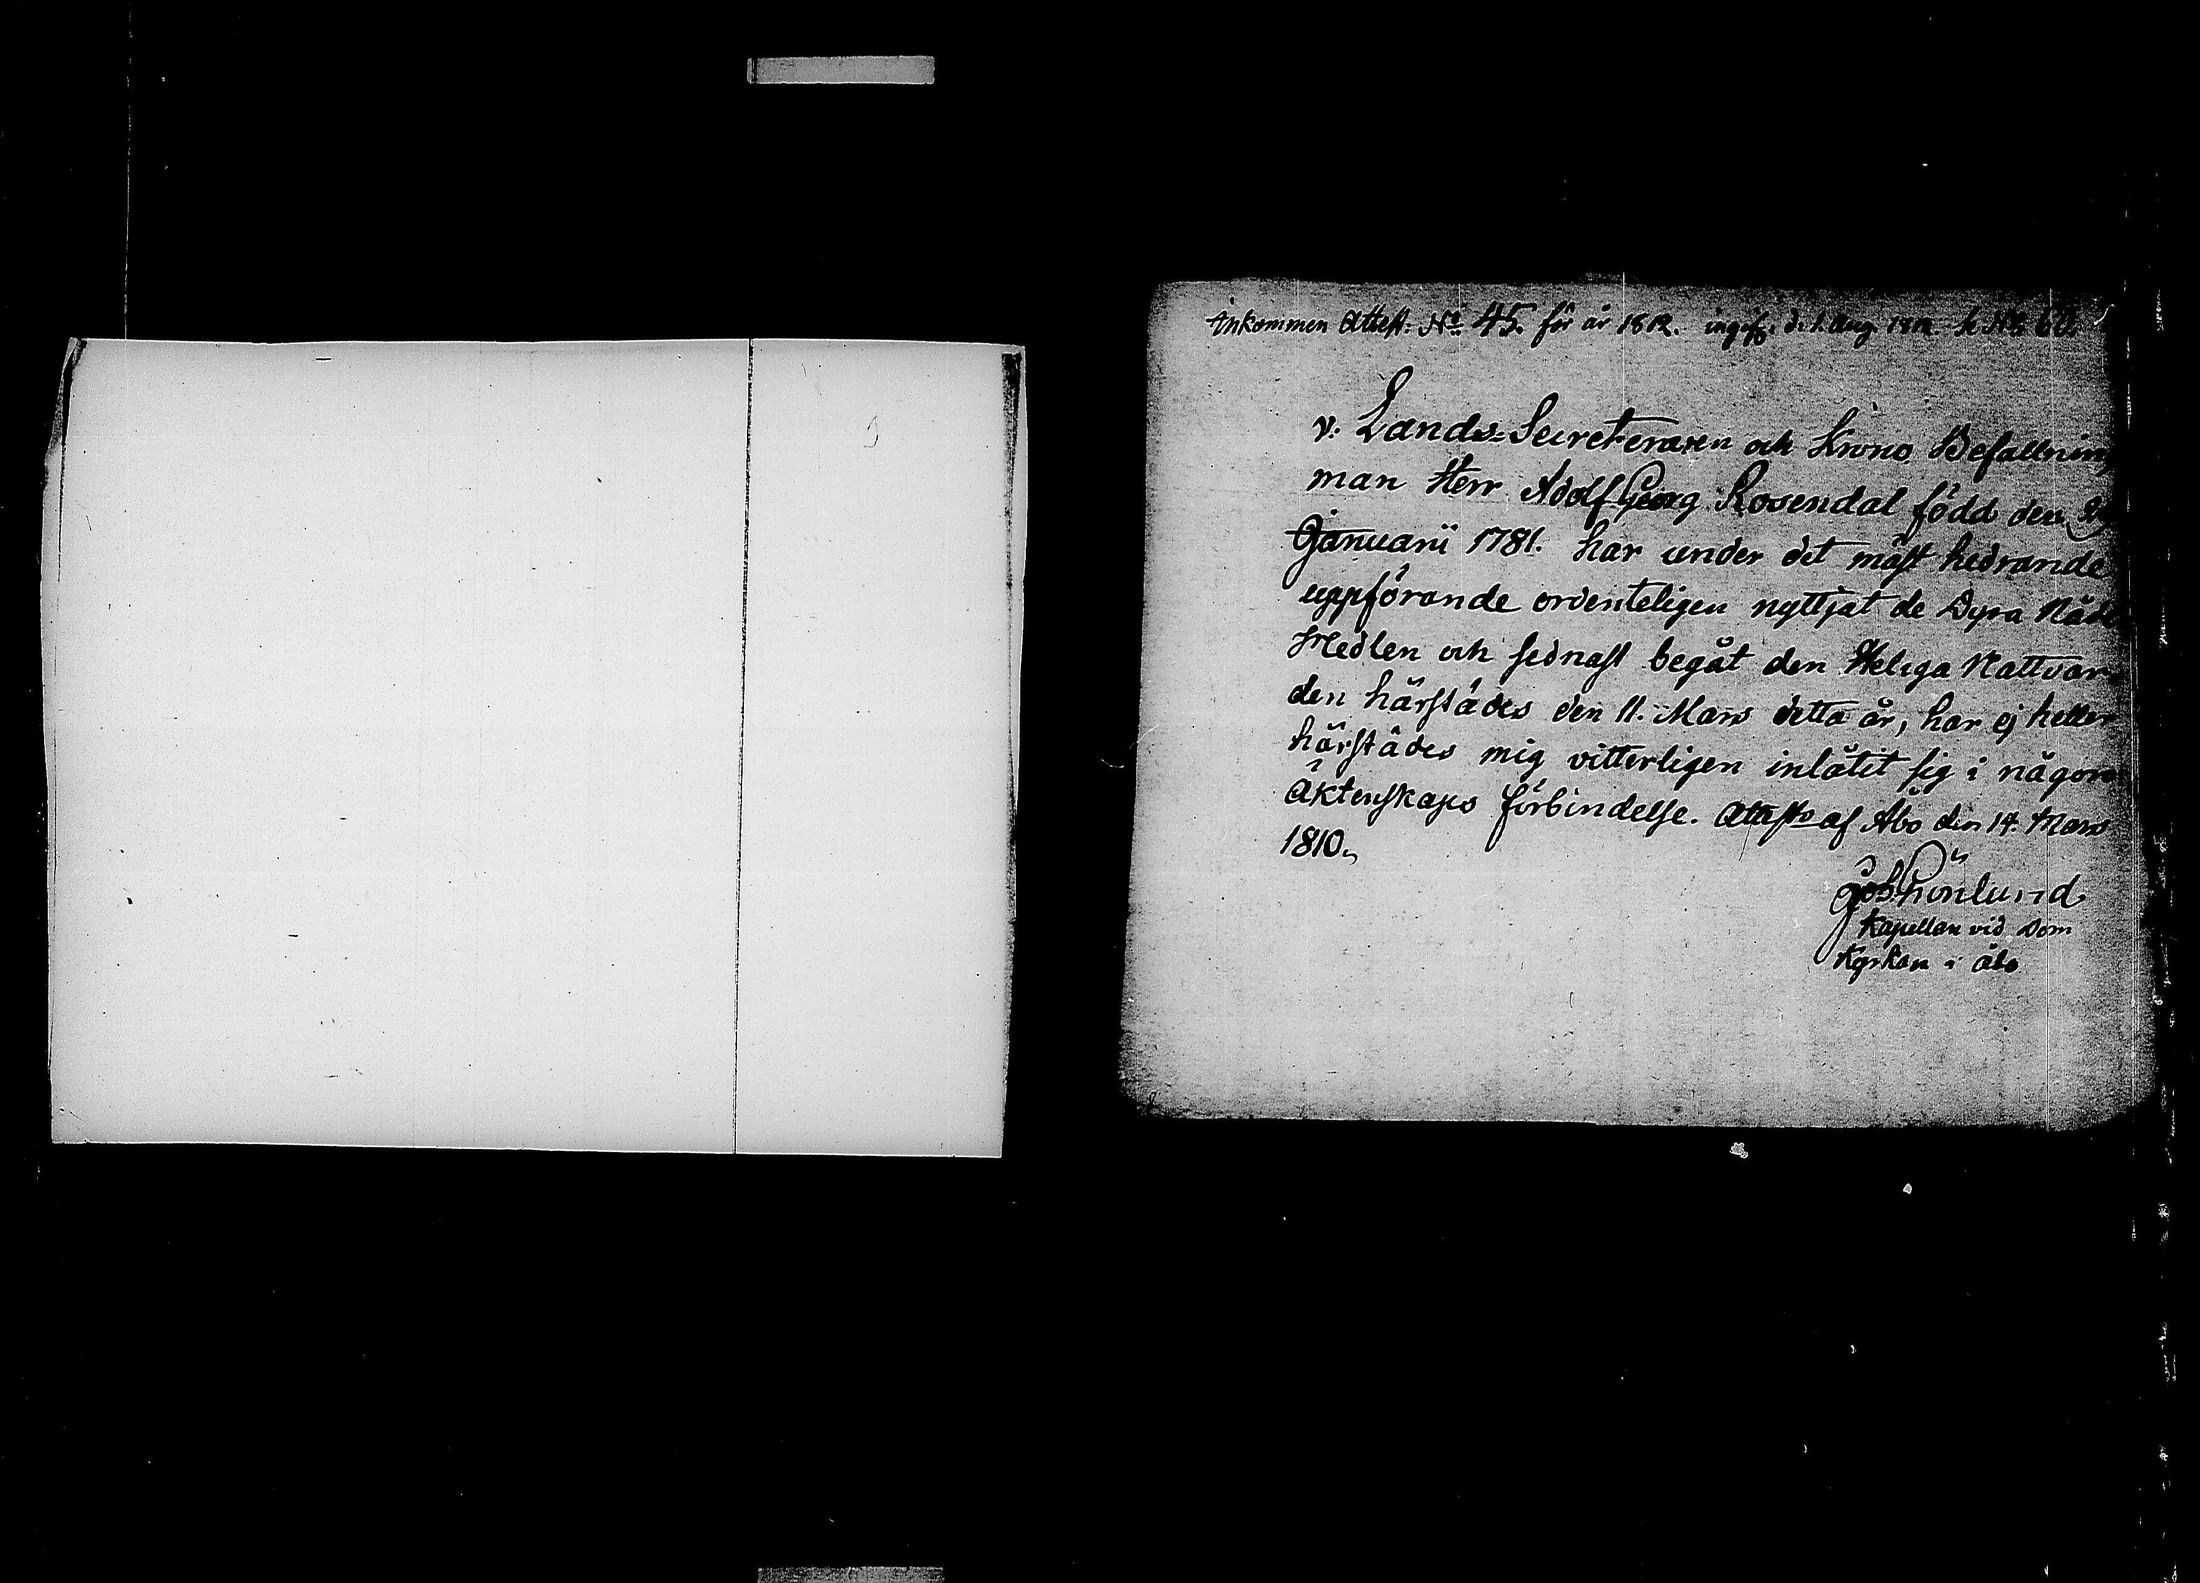 Inkommen Attest: No 45. för år 1812. ingifv. d. 1. Aug. 1812
v. Lands-Secreteraren och Krono Befallnings
man Herr Adolf Georg Rosendal född den
Januarii 1781. har under det mäst hedrande
uppförande ordenteligen nyttjat de Dyra Nåde
Medlen och sednast begåt den Heliga Nattvar-
den härstädes den 11. Mars detta år, har ej heller
härstädes mig vitterligen inlåtit sig i någon
Äktenskaps förbindelse. Attest. af Åbo den 14. Mars
1810.
Kapellan vid Dom
Kyrkan i Åbo